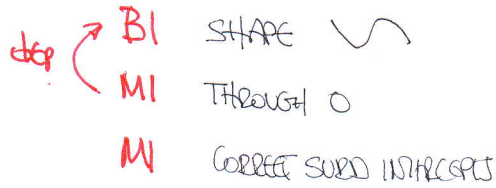 B1 SHAPE
dep M1 THROUGH O
M1 CORRECT SURD INTERCEPTS